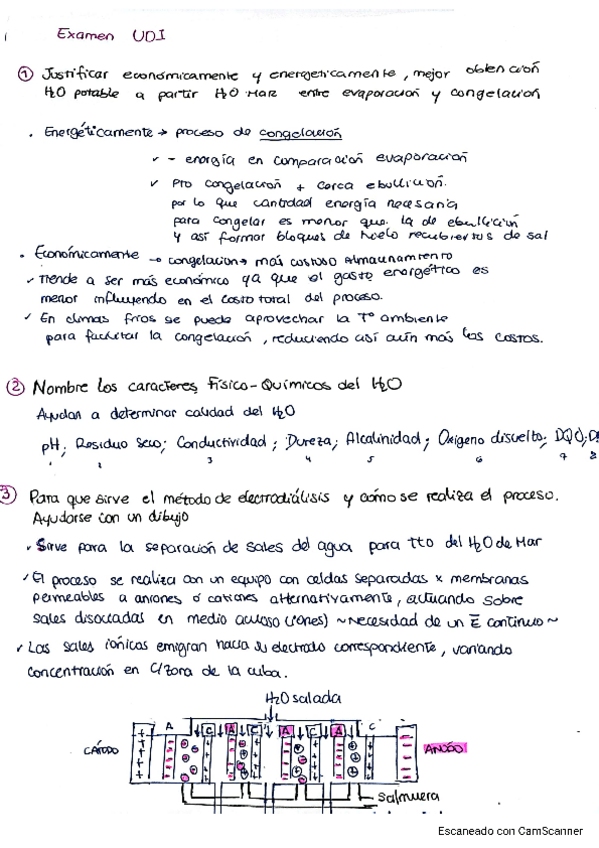 Examen UD1
① Justificar económicamente y energeticamente, mejor obtención
H₂O potable a partir H₂O Mar entre evaporación y congelación
. Energéticamente → proceso de congelación
✓ - energía en comparación evaporación
✓ Pto congelación + cerca ebullición.
por lo que cantidad energía necesaria
para congelar es menor que la de ebullición
y así formar bloques de hielo recubiertos de sal
. Económicamente → congelación → más costoso almacenamiento
✓ Tiende a ser más económico ya que el gasto energético es
menor influyendo en el costo total del proceso.
✓ En climas fríos se puede aprovechar la Tº ambiente
para facilitar la congelación, reduciendo así aún más los costos.
② Nombre los caracteres Físico-Químicos del H₂O
Ayudan a determinar calidad del H₂O
pH; Residuo seco; Conductividad; Dureza; Alcalinidad; Oxigeno disuelto; DQO;
1 2 3 4 5 6 7 8
③ Para que sirve el método de electrodiálisis y cómo se realiza el proceso.
Ayudarse con un dibujo
✓ Sirve para la separación de sales del agua para tto del H₂O de Mar
✓ El proceso se realiza con un equipo con celdas separadas x membranas
permeables a aniones o cationes alternativamente, actuando sobre
sales disociadas en medio acuoso (iones) ~ Necesidad de un E continuo ~
✓ Las sales iónicas emigran hacia su electrodo correspondiente, variando
concentración en c/zona de la cuba.
H₂O salada
A C A C A C A C
CÁTODO
ANODO
Salmuera
Escaneado con CamScanner